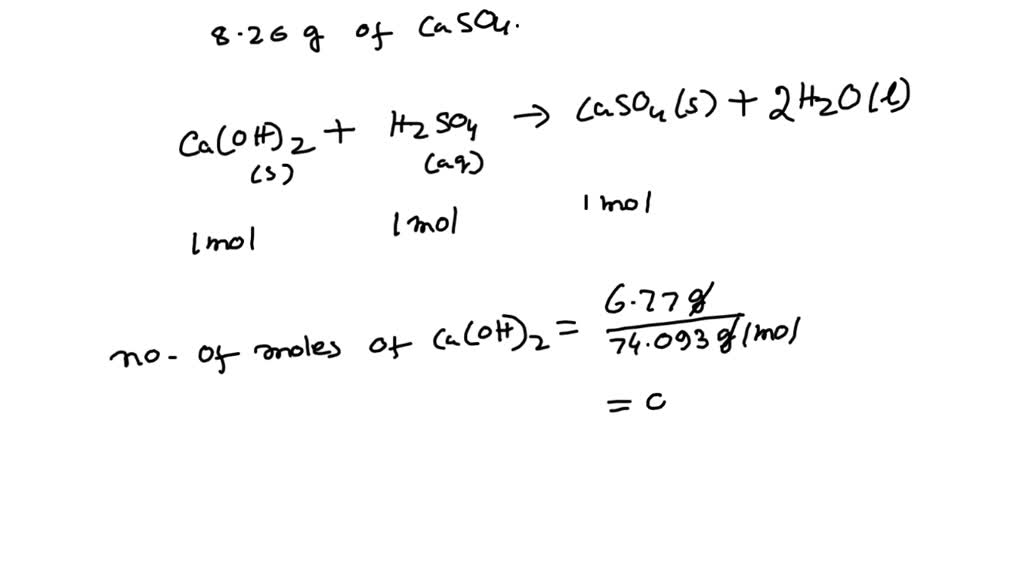 8.26 g of CaSO4.
Ca(OH)2 + H2SO4 → CaSO4(s) + 2H2O(l)
(s) (aq)
1mol 1mol 1mol
no- of moles of Ca(OH)2 = 6.77g / 74.093g/mol
= 0